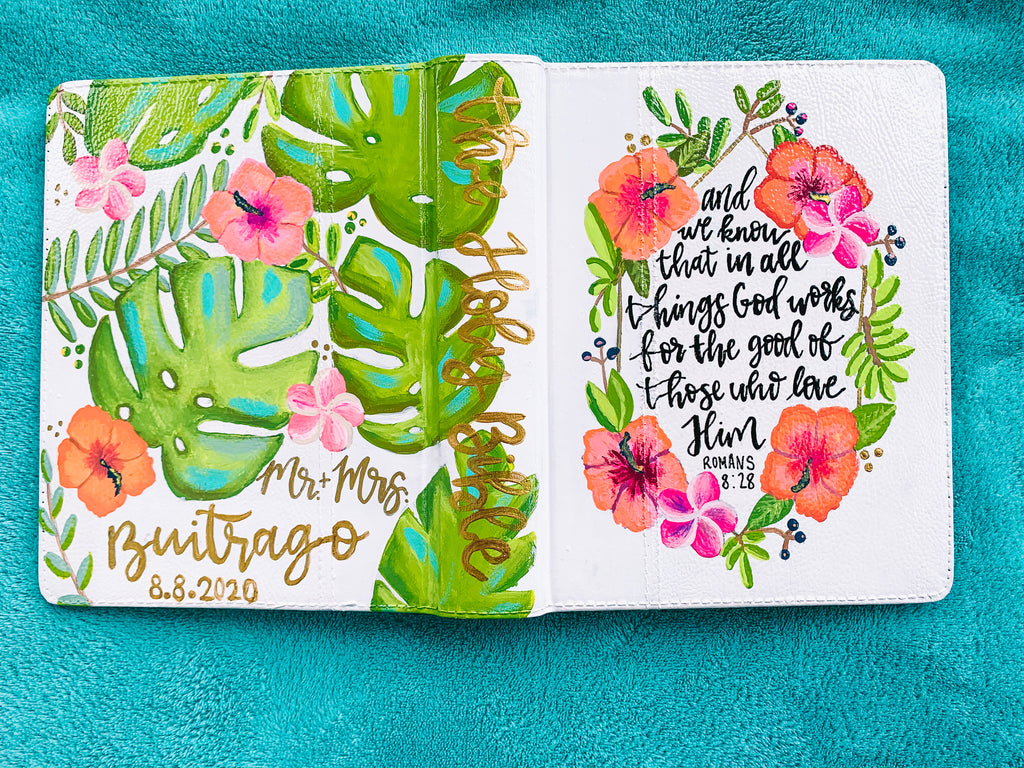 Mr. + Mrs.
Buitrago
8.8.2020
the Holy Bible
and
we know
that in all
things God works
for the good of
those who love
Him
ROMANS
8:28